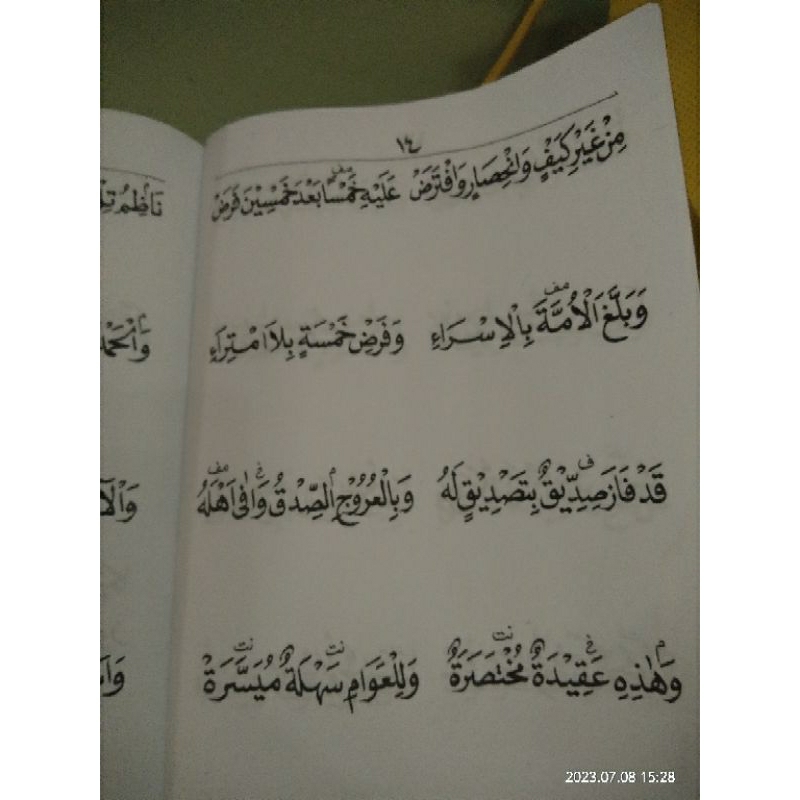 ١٤
مِنْ غَيْرِ كَيْفٍ وَانْحِصَارٍ وَافْتَرَضْ عَلَيْهِ خَمْسًا بَعْدَ خَمْسِيْنَ فَرَضْ
وَبَلَّغَ الْاُمَّةَ بِالْاِسْرَاءِ وَفَرْضِ خَمْسَةٍ بِلَا امْتِرَاءِ
قَدْ فَازَ صِدِّيْقٌ بِتَصْدِيْقٍ لَهُ وَبِالْعُرُوْجِ الصِّدْقُ وَافٰى اَهْلَهُ
وَهٰذِهِ عَقِيْدَةٌ مُخْتَصَرَةٌ وَلِلْعَوَامِ سَهْلَةٌ مُيَسَّرَةْ
نَاظِمُ
2023.07.08 15:28